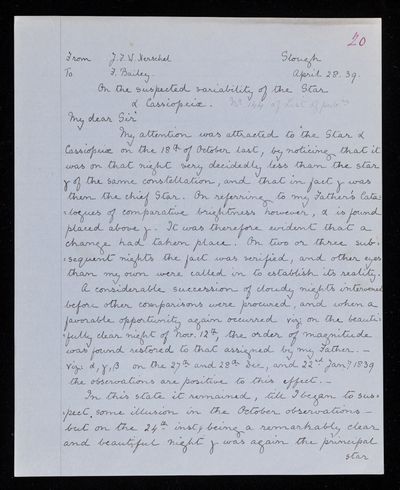 20
From J. F. W. Herschel Slough
To F. Baily. April 28. 39.
On the suspected variability of the Star
α Cassiopeiæ.
My dear Sir
My attention was attracted to the Star α
Cassiopeiæ on the 18th of October last, by noticing that it
was on that night very decidedly less than the star
γ of the same constellation, and that in fact γ was
then the chief Star. On referring to my Father's Cata-
-logues of comparative brightness however, α is found
placed above γ. It was therefore evident that a
change had taken place. On two or three sub-
-sequent nights the fact was verified, and other eyes
than my own were called in to establish its reality.
A considerable succession of cloudy nights intervened
before other comparisons were procured, and when a
favorable opportunity again occurred viz: on the beauti-
-fully clear night of Nov. 12th, the order of magnitude
was found restored to that assigned by my Father. —
Viz: α, γ, β on the 27th and 28th Dec., and 22nd Jany. 1839
the observations are positive to this effect. —
In this state it remained, till I began to sus-
-pect some illusion in the October observations —
but on the 24th inst, being a remarkably clear
and beautiful night γ was again the principal
star